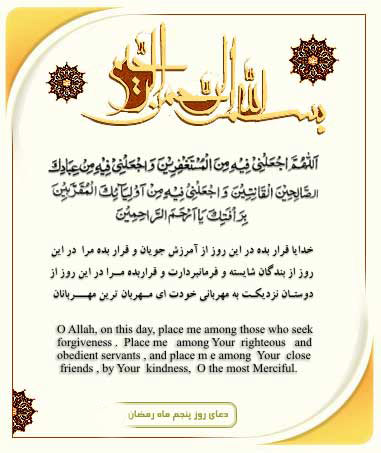 بسم الله الرحمن الرحیم
اَللّهُمَّ اجْعَلْنی فیهِ مِنَ الْمُسْتَغْفِرینَ وَ اجْعَلْنی فیهِ مِنْ عِبادِكَ
الصّالِحینَ الْقانِتینَ وَ اجْعَلْنی فیهِ مِنْ اَوْلِیائِكَ الْمُقَرَّبینَ
بِرَأْفَتِكَ یا اَرْحَمَ الرّاحِمینَ
خدایا قرار بده در این روز از آمرزش جویان و قرار بده مرا در این
روز از بندگان شایسته و فرمانبردارت و قراربده مـرا در این روز از
دوستـان نزدیکـت به مهربانی خودت ای مـهربان ترین مهـــربانان
O Allah, on this day, place me among those who seek
forgiveness , Place me among Your righteous and
obedient servants , and place m e among Your close
friends , by Your kindness, O the most Merciful.
دعای روز پنجم ماه رمضان